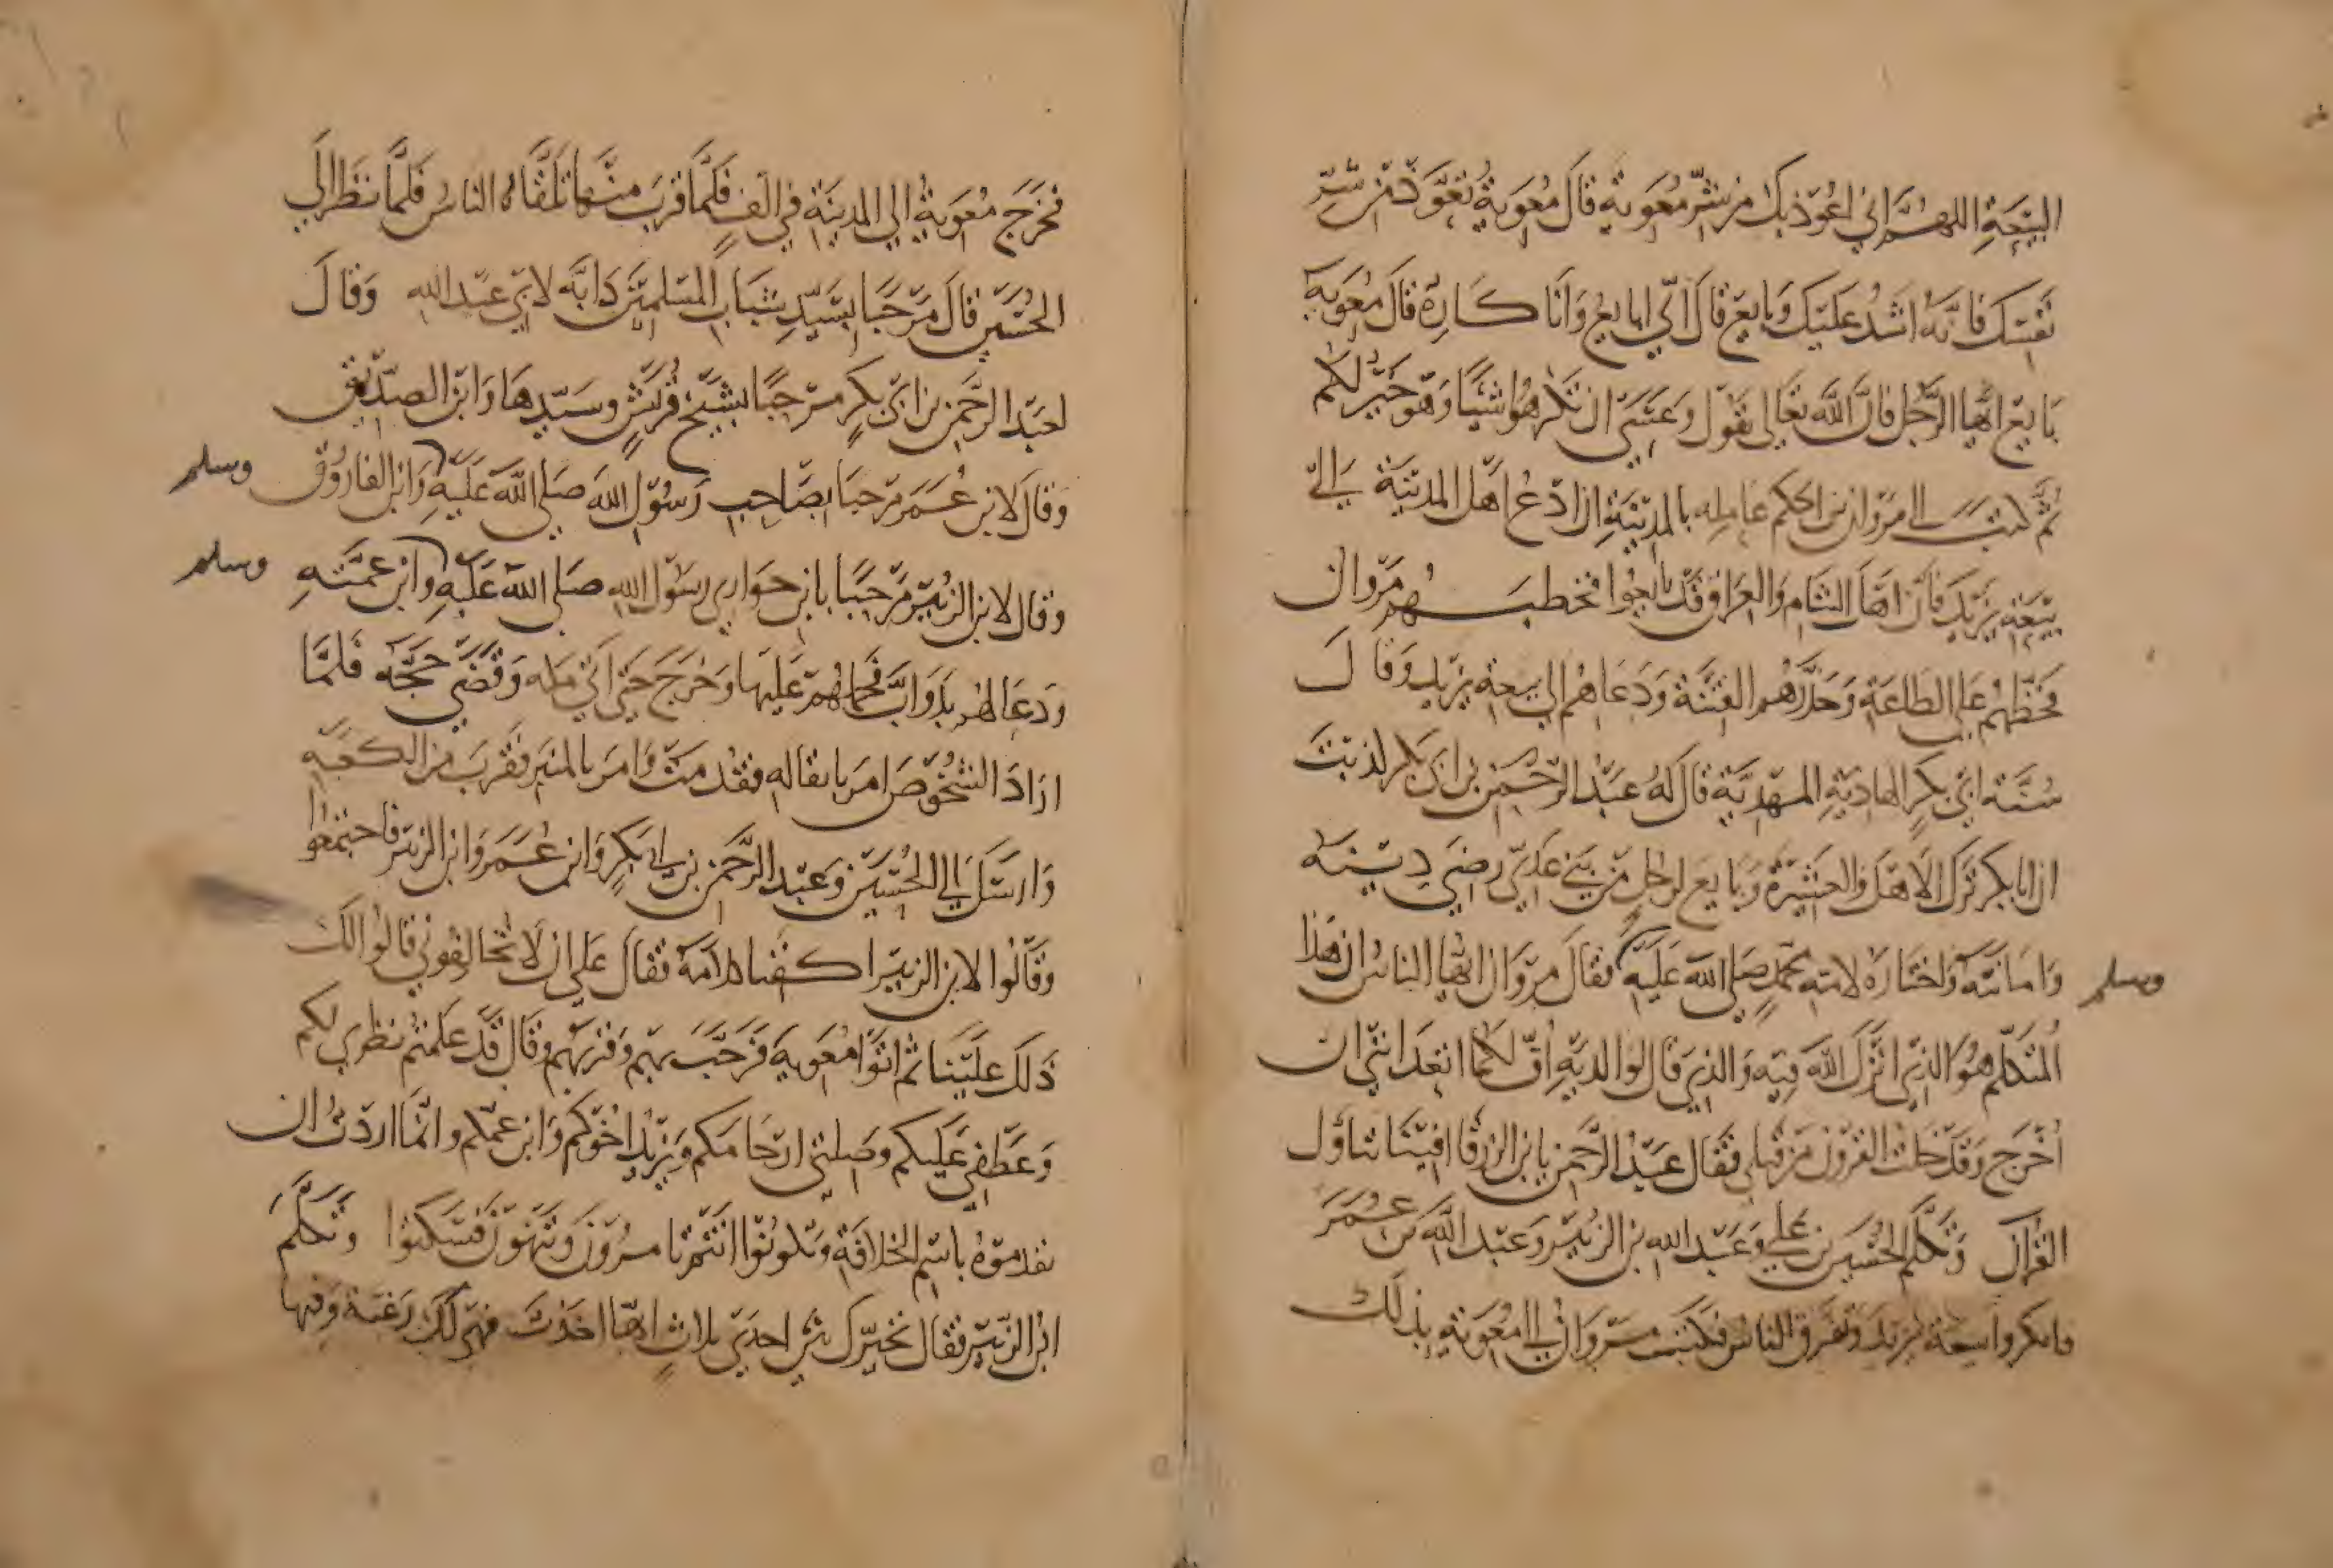 البيعة اللهم اني اعوذ بك من شر معوية قال معوية تعوذ من شر
نفسك فانه اشد عليك وبايع قال اني ابايع وانا كاره قال معوية
بايع ايها الرجل فان الله تعالى يقول وعسى ان تكرهوا شيئا وهو خير لكم
ثم كتب الى مروان بن الحكم عامله بالمدينة ان ادع اهل المدينة الى
بيعة يزيد فان اهل الشام والعراق قد بايعوا فخطبهم مروان
فحظهم على الطاعة وحذرهم الفتنة ودعاهم الى بيعة يزيد وقال
سنة ابي بكر الهادية المهدية قال له عبد الرحمن بن ابي بكر كذبت
ان ابا بكر ترك الاهل والعشيرة وبايع لرجل من بني عدي رضي دينه
وامانته واختاره لامة محمد صلى الله عليه وسلم فقال مروان ايها الناس ان هذا
المتكلم هو الذي انزل الله فيه والذي قال لوالديه اف لكما اتعدانني ان
اخرج وقد خلت القرون من قبلي فقال عبد الرحمن يا ابن الزرقا افينا تتأول
القرآن وتكلم الحسين بن علي وعبد الله بن الزبير وعبد الله بن عمر
وانكروا بيعة يزيد وتفرق الناس فكتب مروان الى معوية بذلك
فخرج معوية الي المدينة في الف فلما قرب منها تلقاه الناس فلما نظر الي
الحسين قال مرحبا بسيد شباب المسلمين دابه لابي عبد الله وقال
لعبد الرحمن بن ابي بكر مرحبا بشيخ قريش وسيدها وابن الصديق
وقال لابن عمر مرحبا بصاحب رسول الله صلى الله عليه وسلم وابن الفاروق
وقال لابن الزبير مرحبا بابن حواري رسول الله صلى الله عليه وسلم وابن عمته
ودعا لهم بدواب فحملهم عليها وخرج حتى اتى مكه وقضى حجه فلما
اراد الشخوص امر باثقاله فقدمت وامر بالمنبر فقرب من الكعبة
وارسل الي الحسين وعبد الرحمن بن ابي بكر وابن عمر وابن الزبير فاجتمعوا
وقالوا لابن الزبير اكفنا كلامه فقال على ان لا تخالفوني قالوا لك
ذلك علينا ثم اتوا معوية فرحب بهم وقربهم وقال قد علمتم نظري لكم
وعطفي عليكم وصلتي ارحامكم ويزيد اخوكم وابن عمكم وانما اردت ان
تقدموه باسم الخلافة وتكونوا انتم تامرون وتنهون فسكتوا وتكلم
ابن الزبير فقال نخيرك بين احدى ثلاث ايها اخذت فهي لك رغبة وفيها